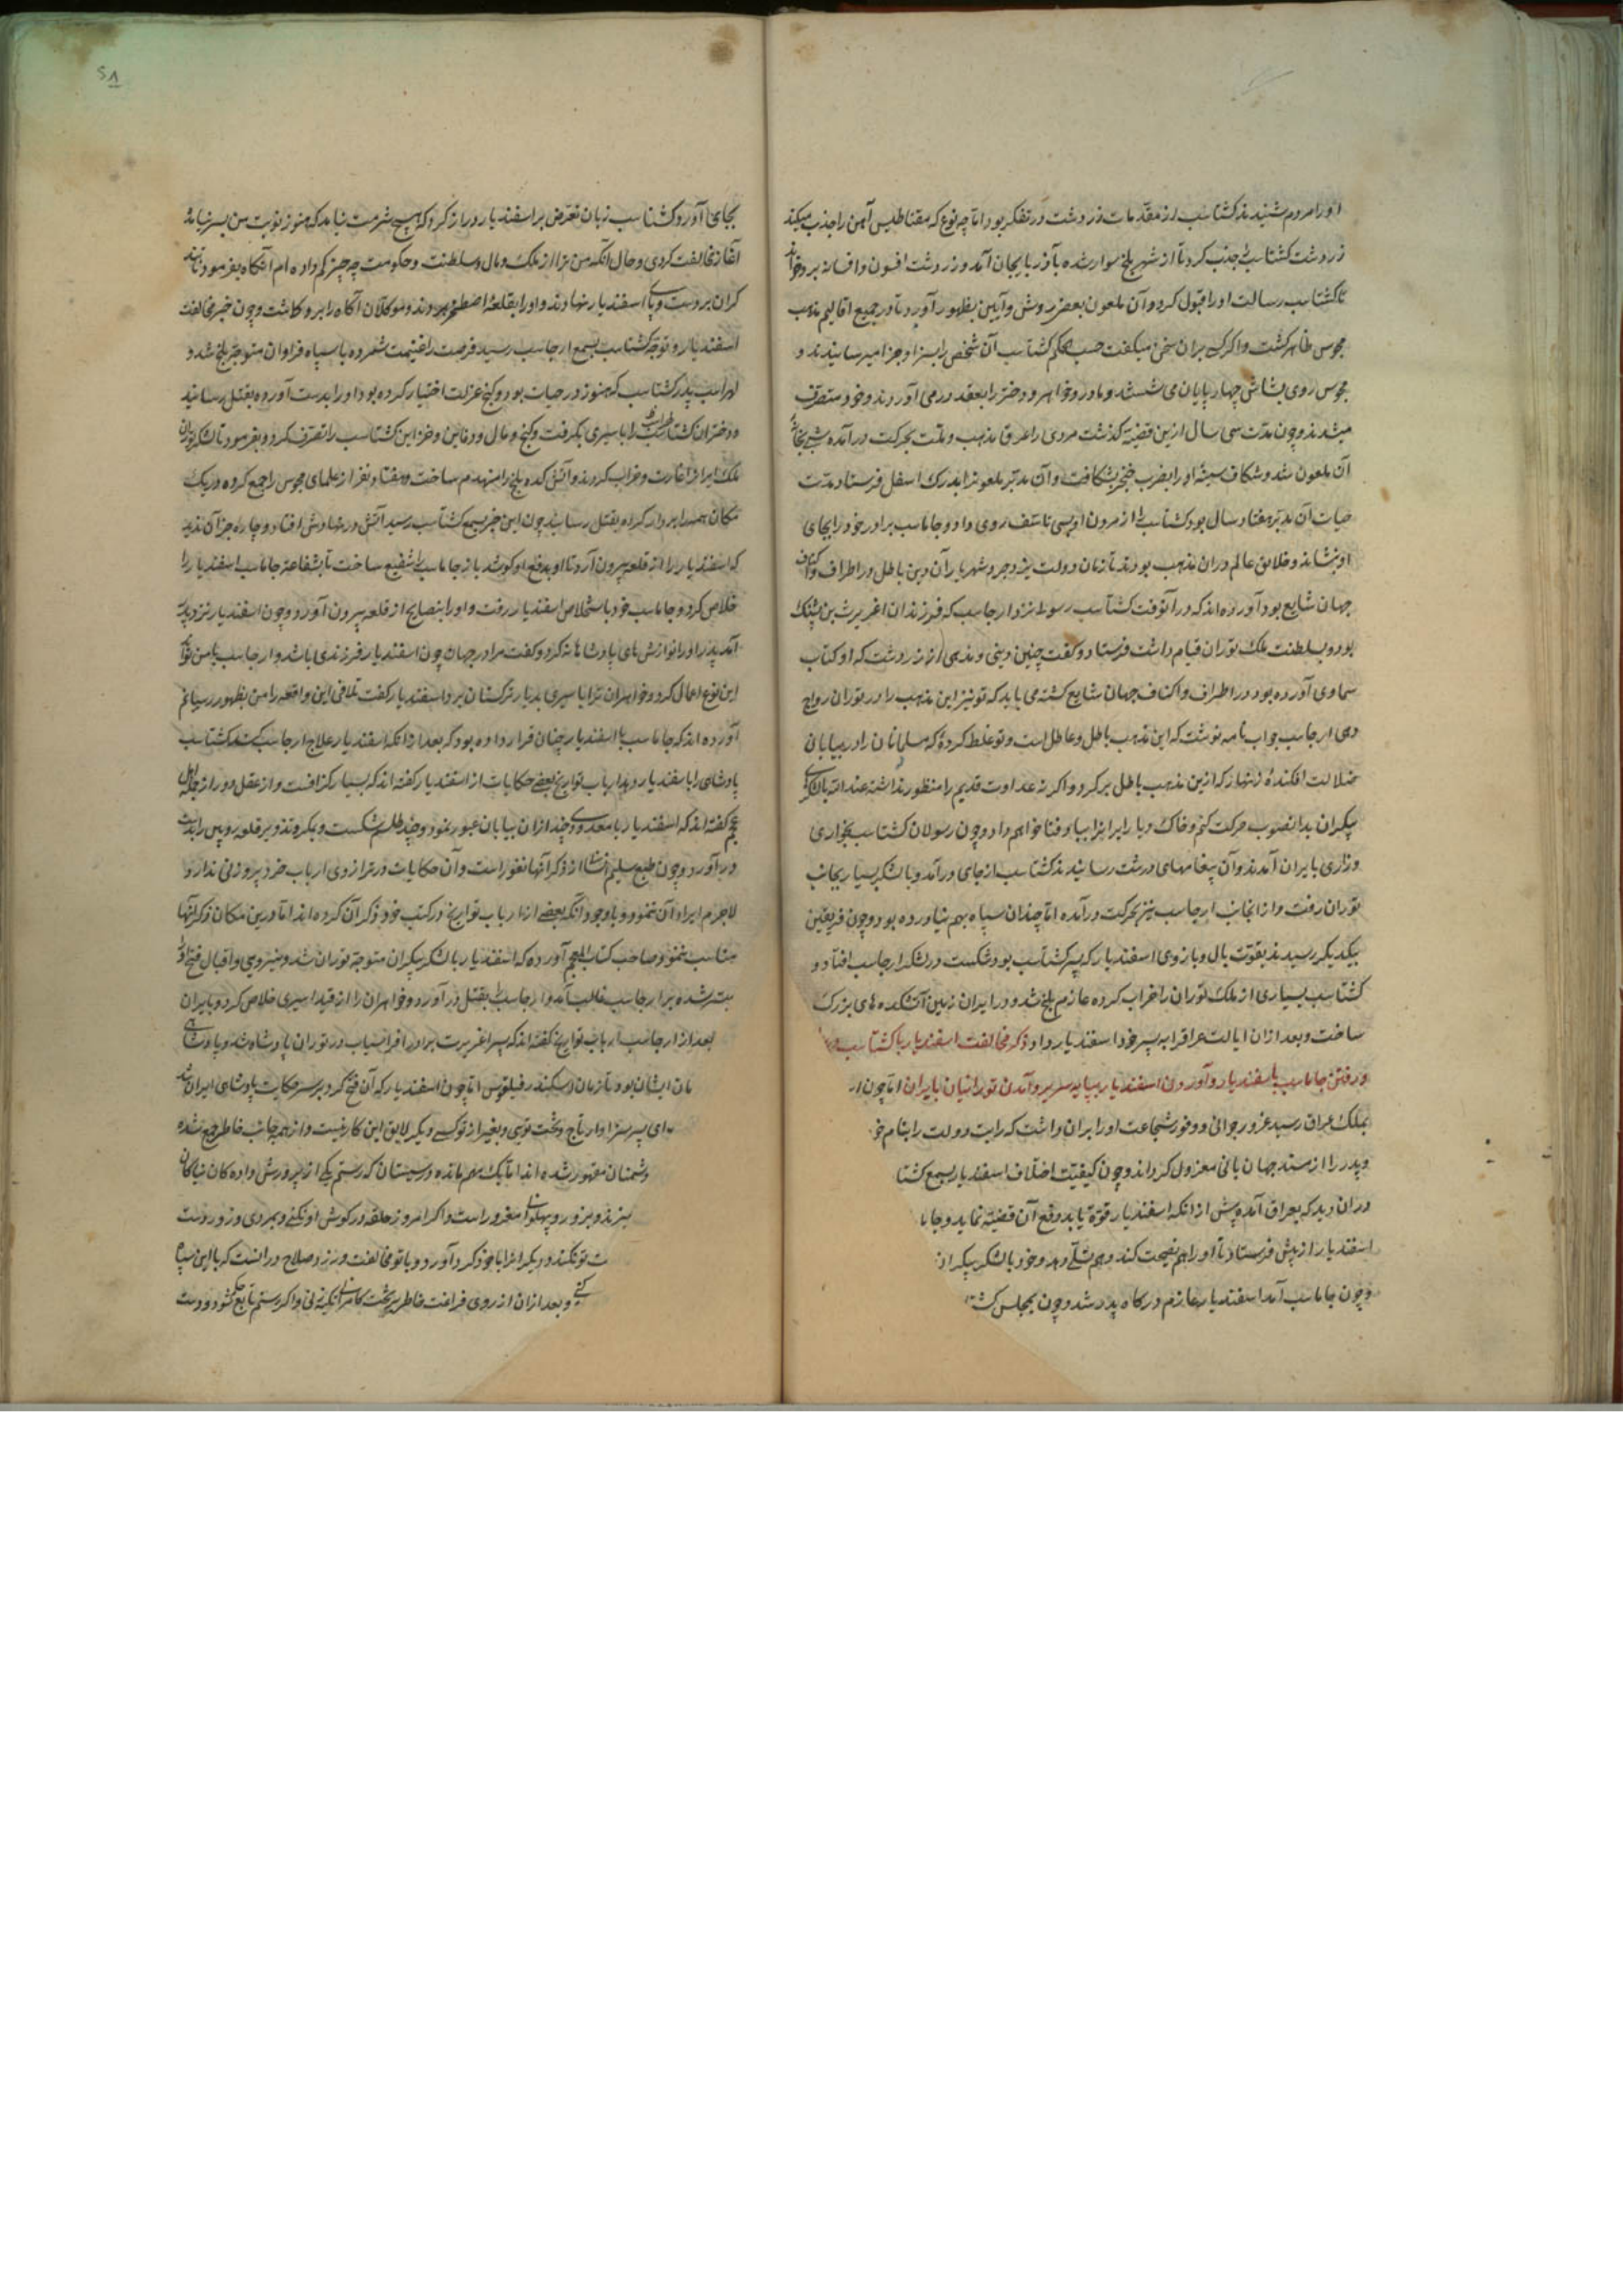 او را مردم شنیدند کشتاسب از مقدمات زردشت در تفکر بود اما چه نوع که مقناطیس آهن را جذب میکند
زردشت کشتاسب را جذب کرد تا از شهر بلخ سوار شده بآذربایجان آمد و زردشت افسون و افسانه برو خواند
تا کشتاسب رسالت او را قبول کرد و آن ملعون بعضی روش و آیین بظهور آورد تا در جمیع اقالیم مذهب
مجوس ظاهر کشت و اکر کسی بران سخن میکفت حسب الحکم کشتاسب آن شخص را بسزا و جزا میرسانیدند و
مجوس روی بشاش چهارپایان می شستند و مادر و خواهر و دختر را بعقد در می آوردند و خود متصرف
میشدند و چون مدت سی سال ازین قضیه کذشت مردی را عرق مذهب و ملت بحرکت درآمده شبی بخانه
آن ملعون شد و شکاف سینه او را بضرب خنجر بشکافت و آن مدبر ملعون را بدرک اسفل فرستاد مدت
حیات آن مدبر هفتاد سال بود کشتاسب را از مردن او بسی تاسف روی داد و جاماسب برادر خود را بجای
او بنشاند و خلایق عالم دران مذهب بودند تا زمان دولت یزدجرد شهریار آن دین باطل در اطراف و اکناف
جهان شایع بود آورده اند که در آنوقت کشتاسب رسول نزد ارجاسب که فرزندان اغریرث بن پشنک
بود و بسلطنت ملک توران قیام داشت فرستاد و کفت چنین دینی و مذهبی از زردشت که او کتاب
سماوی آورده بود در اطراف و اکناف جهان شایع کشته می باید که تو نیز این مذهب را در توران رواج
دهی ارجاسب جواب نامه نوشت که این مذهب باطل و عاطل است و تو غلط کرده که مسلمانان را در بیابان
ضلالت افکنده زنهار که ازین مذهب باطل برکرد و اکر نه عداوت قدیم را منظور نداشته عند الله با لشکری
بیکران بدانصوب حرکت کنم و خاک دیار ایران را بباد فنا خواهم داد و چون رسولان کشتاسب بخواری
و زاری بایران آمدند و آن پیغامهای درشت رسانیدند کشتاسب از جای درآمد و با لشکر بسیار بجانب
توران رفت و از انجانب ارجاسب نیز بحرکت درآمده اما چندان سپاه بهم نیاورده بود و چون فریقین
بیکدیکر رسیدند بقوت بال و بازوی اسفندیار که پسر کشتاسب بود شکست در لشکر ارجاسب افتاد و
کشتاسب بسیاری از ملک توران را خراب کرده عازم بلخ شد و در ایران زمین آتشکده های بزرک
ساخت و بعد ازان ایالت عراق را به پسر خود اسفندیار داد ذکر مخالفت اسفندیار با کشتاسب
و رفتن جاماسب باسفندیار و آوردن اسفندیار بپایه سریر و آمدن تورانیان بایران اما چون ار
بملک عراق رسید غرور جوانی و وفور شجاعت او را بران داشت که رایت دولت را بنام خو
و پدر را از مسند جهان بانی معزول کرداند و چون کیفیت اختلاف اسفندیار بسمع کشتا
دران دید که بعراق آمده پیش از انکه اسفندیار قوة یابد دفع آن قضیه نماید و جاما
اسفندیار از پیش فرستاد تا او را هم نصیحت کند و هم تسلی دهد و خود با لشکر بیکران
و چون جاماسب آمد اسفندیار عازم درکاه پدر شد و چون بمجلس کشت
بجای آورد کشتاسب زبان تعرض بر اسفندیار دراز کرد که هیچ شرمت نیامد که هنوز نوبت من بسر نیامده
آغاز مخالفت کردی و حال آنکه من ترا از ملک و مال و سلطنت و حکومت چه چیز کم داده ام آنکاه بفرمود تا بند
کران بر دست و پای اسفندیار نهادند و او را بقلعه اصطخر بردند و موکلان آکاه را برو کماشت و چون خبر مخالفت
اسفندیار و توجه کشتاسب بسمع ارجاسب رسید فرصت را غنیمت شمرده با سپاه فراوان متوجه بلخ شد و
لهراسب پدر کشتاسب که هنوز در حیات بود و کنج عزلت اختیار کرده بود او را بدست آورده بقتل رسانید
و دختران کشتاسب را باسیری بکرفت و کنج و مال و دفاین و خزاین کشتاسب را تصرف کرد و بفرمود تا لشکر توران
ملک ایران را غارت و خراب کردند و آتش کده بلخ را منهدم ساخت و هفتاد نفر از علمای مجوس را جمع کرده در یک
مکان همه را بردار کرده بقتل رسانید چون این خبر بسمع کشتاسب رسید آتش در نهادش افتاد و چاره جز آن ندید
که اسفندیار را از قلعه بیرون آرد تا او بدفع او کوشد باز جاماسب را شفیع ساخت تا بشفاعة جاماسب اسفندیار را
خلاص کرد و جاماسب خود باستخلاص اسفندیار رفت و او را بنصایح از قلعه بیرون آورد و چون اسفندیار نزد پدر
آمد پدر او را نوازش های پادشاهانه کرد و کفت مرا در جهان چون اسفندیار فرزندی باشد و ارجاسب با من تواند
این نوع اعمال کرد و خواهران ترا باسیری بدیار ترکستان برد اسفندیار کفت تلافی این واقعه را من بظهور رسانم
آورده اند که جاماسب با اسفندیار چنان قرار داده بود که بعد از انکه اسفندیار علاج ارجاسب کند کشتاسب
پادشاهی را باسفندیار دهد ارباب تواریخ بعضی حکایات از اسفندیار کفته اند که بسیار کزافست و از عقل دور از جمله اهل
عجم کفته اند که اسفندیار با معدودی چند ازان بیابان عبور نمود و چند طلسم بشکست و بمکر و تذویر قلعه رویین را بدست
درآورد و چون طبع سلیم از ذکر آنها نفور است و آن حکایات در ترازوی ارباب خرد پر وزنی ندارد
لاجرم ایراد آن ننمود و با وجود آنکه بعضی از ارباب تواریخ در کتب خود ذکر آن کرده اند اما درین مکان ذکر آنها
مناسب ننمود و صاحب کتاب المعجم آورده که اسفندیار با لشکر بیکران متوجه توران شد و بنیروی واقبال فتح او
میسر شده بر ارجاسب غالب آمد و ارجاسب را بقتل درآورد و خواهران را از قید اسیری خلاص کرد و بایران
بعد از ارجاسب ارباب تواریخ کفته اند که پسر اغریرث برادر افراسیاب در توران پادشاه شد و پادشاهی
مان ایشان بود تا زمان اسکندر فیلقوس اما چون اسفندیار که آن فتح کرد بر سر حکایت پادشاهی ایران شد
ای پسر سزاوار تاج و تخت توی و بغیر از تو کسی دیکر لایق این کار نیست و از همه جانب خاطر جمع شده
دشمنان مقهور شده اند اما یک مهم مانده و سیستان که رستم یکی از پرورش داده کان نیاکان
و بزور و پهلوانی مغرور است و اکر امروز حلقه در کوش او نکنی و بمردی و زور دست
ت تو نکند و دیکر انرا با خود کرد آورد و با تو مخالفت ورزد صلاح در انست که با این سپاه
کنی و بعد ازان از روی فراغت خاطر بر تخت کامرانی تکیه زنی و اکر رستم تابع حکم شود و دست